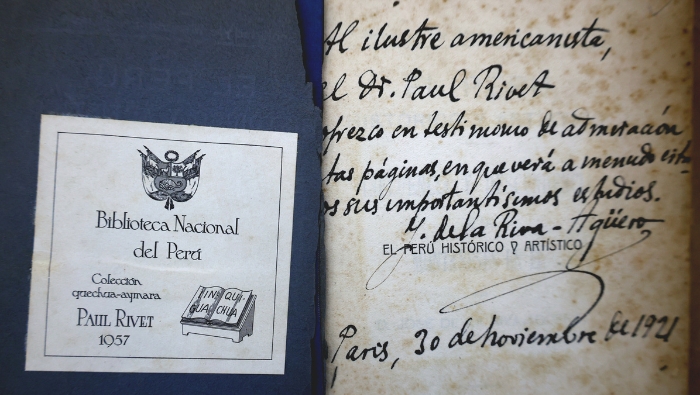 Biblioteca Nacional
del Perú
Colección
quechua-aymara
PAUL RIVET
1957
Al ilustre americanista,
el Dr. Paul Rivet
ofrezco en testimonio de admiración
tas páginas, en que verá a menudo
os sus importantísimos estudios.
J. de la Riva-Agüero
EL PERÚ HISTÓRICO Y ARTÍSTICO
Paris, 30 de noviembre de 1921